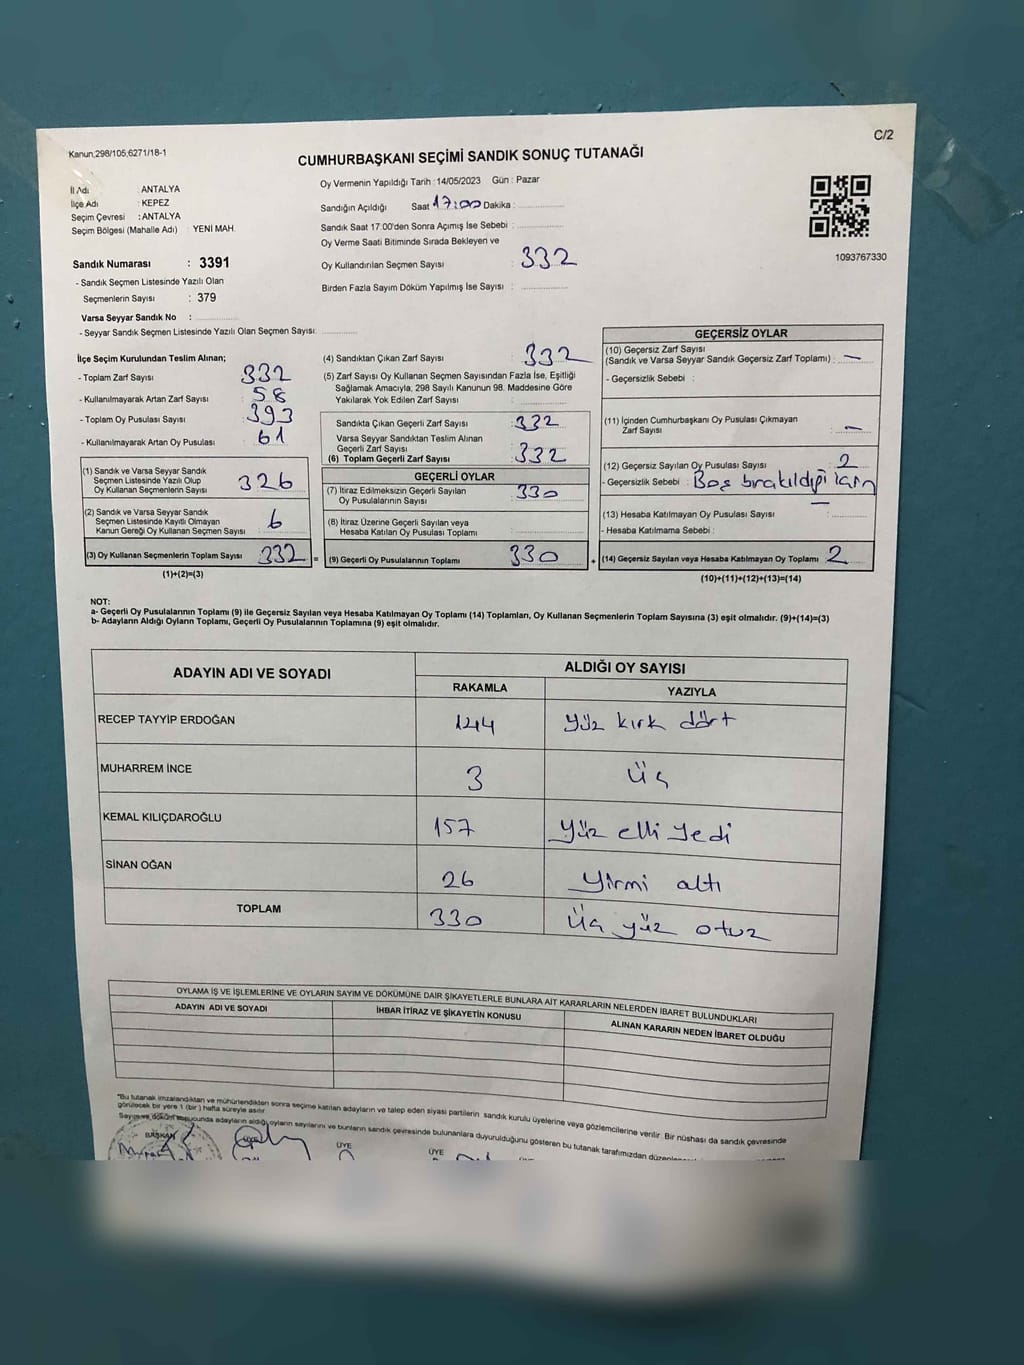 C/2
Kanun,298/105,6271/18-1
CUMHURBAŞKANI SEÇİMİ SANDIK SONUÇ TUTANAĞI
İl Adı : ANTALYA
İlçe Adı : KEPEZ
Seçim Çevresi : ANTALYA
Seçim Bölgesi (Mahalle Adı) : YENİ MAH.
Sandık Numarası : 3391
- Sandık Seçmen Listesinde Yazılı Olan
Seçmenlerin Sayısı : 379
Varsa Seyyar Sandık No :
- Seyyar Sandık Seçmen Listesinde Yazılı Olan Seçmen Sayısı:
Oy Vermenin Yapıldığı Tarih : 14/05/2023 Gün : Pazar
Sandığın Açıldığı Saat 17:00 Dakika :
Sandık Saat 17.00'den Sonra Açımış İse Sebebi :
Oy Verme Saati Bitiminde Sırada Bekleyen ve
Oy Kullandırılan Seçmen Sayısı : 332
Birden Fazla Sayım Döküm Yapılmış İse Sayısı :
1093767330
İlçe Seçim Kurulundan Teslim Alınan;
- Toplam Zarf Sayısı : 332
- Kullanılmayarak Artan Zarf Sayısı : 58
- Toplam Oy Pusulası Sayısı : 393
- Kullanılmayarak Artan Oy Pusulası : 61
(1) Sandık ve Varsa Seyyar Sandık
Seçmen Listesinde Yazılı Olup
Oy Kullanan Seçmenlerin Sayısı : 326
(2) Sandık ve Varsa Seyyar Sandık
Seçmen Listesinde Kayıtlı Olmayan
Kanun Gereği Oy Kullanan Seçmen Sayısı : 6
(3) Oy Kullanan Seçmenlerin Toplam Sayısı : 332 =
(1)+(2)=(3)
(4) Sandıktan Çıkan Zarf Sayısı : 332
(5) Zarf Sayısı Oy Kullanan Seçmen Sayısından Fazla İse, Eşitliği
Sağlamak Amacıyla, 298 Sayılı Kanunun 98. Maddesine Göre
Yakılarak Yok Edilen Zarf Sayısı :
Sandıkta Çıkan Geçerli Zarf Sayısı : 332
Varsa Seyyar Sandıktan Teslim Alınan
Geçerli Zarf Sayısı :
(6) Toplam Geçerli Zarf Sayısı : 332
GEÇERLİ OYLAR
(7) İtiraz Edilmeksizin Geçerli Sayılan
Oy Pusulalarının Sayısı : 330
(8) İtiraz Üzerine Geçerli Sayılan veya
Hesaba Katılan Oy Pusulası Toplamı :
(9) Geçerli Oy Pusulalarının Toplamı : 330 +
GEÇERSİZ OYLAR
(10) Geçersiz Zarf Sayısı
(Sandık ve Varsa Seyyar Sandık Geçersiz Zarf Toplamı) : —
- Geçersizlik Sebebi :
(11) İçinden Cumhurbaşkanı Oy Pusulası Çıkmayan
Zarf Sayısı : —
(12) Geçersiz Sayılan Oy Pusulası Sayısı : 2
- Geçersizlik Sebebi : Boş bırakıldığı için
(13) Hesaba Katılmayan Oy Pusulası Sayısı : —
- Hesaba Katılmama Sebebi :
(14) Geçersiz Sayılan veya Hesaba Katılmayan Oy Toplamı : 2
(10)+(11)+(12)+(13)=(14)
NOT:
a- Geçerli Oy Pusulalarının Toplamı (9) ile Geçersiz Sayılan veya Hesaba Katılmayan Oy Toplamı (14) Toplamları, Oy Kullanan Seçmenlerin Toplam Sayısına (3) eşit olmalıdır. (9)+(14)=(3)
b- Adayların Aldığı Oyların Toplamı, Geçerli Oy Pusulalarının Toplamına (9) eşit olmalıdır.
ADAYIN ADI VE SOYADI ALDIĞI OY SAYISI
RAKAMLA YAZIYLA
RECEP TAYYİP ERDOĞAN 144 Yüz kırk dört
MUHARREM İNCE 3 Üç
KEMAL KILIÇDAROĞLU 157 Yüz elli yedi
SİNAN OĞAN 26 Yirmi altı
TOPLAM 330 Üç yüz otuz
OYLAMA İŞ VE İŞLEMLERİNE VE OYLARIN SAYIM VE DÖKÜMÜNE DAİR ŞİKAYETLERLE BUNLARA AİT KARARLARIN NELERDEN İBARET BULUNDUKLARI
ADAYIN ADI VE SOYADI İHBAR İTİRAZ VE ŞİKAYETİN KONUSU ALINAN KARARIN NEDEN İBARET OLDUĞU
*Bu tutanak imzalandıktan ve mühürlendikten sonra seçime katılan adayların ve talep eden siyasi partilerin sandık kurulu üyelerine veya gözlemcilerine verilir. Bir nüshası da sandık çevresinde
görülecek bir yere 1 (bir) hafta süreyle asılır.
Sayım ve döküm sonucunda adayların aldığı oyların sayılarını ve bunların sandık çevresinde bulunanlara duyurulduğunu gösteren bu tutanak tarafımızdan
BAŞKAN ÜYE ÜYE ÜYE